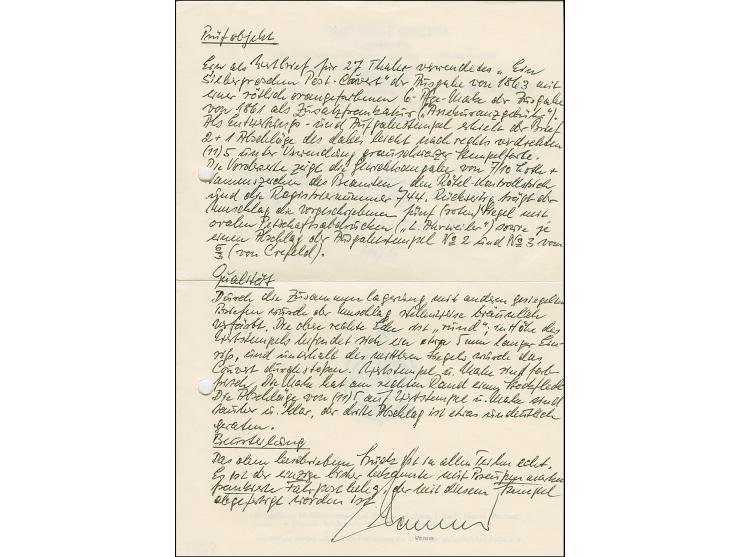 Prüfobjekt
Es als Wertbrief für 27 Thaler verwendetes „Ein
Silbergroschen Post-Couvert" der Ausgabe von 1863 mit
einer rötlichorangefarbenen 6-Pfge-Marke der Ausgabe
von 1861 als Zusatzfrankatur („Assekuranzgebühr").
Als Entwertungs- und Aufgabestempel erhielt der Brief
2+1 Abschläge des dabei leicht nach rechts verdrehten
(11)5 unter Verwendung grauschwarzer Stempelfarbe.
Die Vorderseite zeigt die Gewichtsangabe von 7/10 Loth +
Namenszeichen des Beamten, den Rötel-Kontrollstrich
und die Registriernummer 744. Rückseitig trägt der
Umschlag die vorgeschriebenen fünf (roten) Siegel mit
ovalen Petschaftsabdrücken („L. Ahrweiler") sowie je
einen Abschlag der Ausgabestempel No 2 und No 3 vom
6/3 (von Crefeld).
Qualität
Durch die Zusammenlagerung mit anderen gesiegelten
Briefen wurde der Umschlag stellenweise bräunlich
verfärbt. Die obere rechte Ecke ist „rund"; in Höhe des
Wertstempels befindet sich ein etwa 5 mm langer Ein-
riß, und unterhalb des mittleren Siegels wurde das
Couvert durchstoßen. Wertstempel u. Marke sind farb-
frisch. Die Marke hat am rechten Rand einen Stockfleck.
Die Abschläge von (11)5 auf Wertstempel u. Marke sind
sauber u. klar, der dritte Abschlag ist etwas undeutlich
geraten.
Beurteilung
Das oben beschriebene Stück ist in allen Teilen echt.
Es ist der einzige bisher bekannte mit Preußenmarken
frankierte Fahrpostbeleg, der mit diesem Stempel
abgefertigt worden ist.